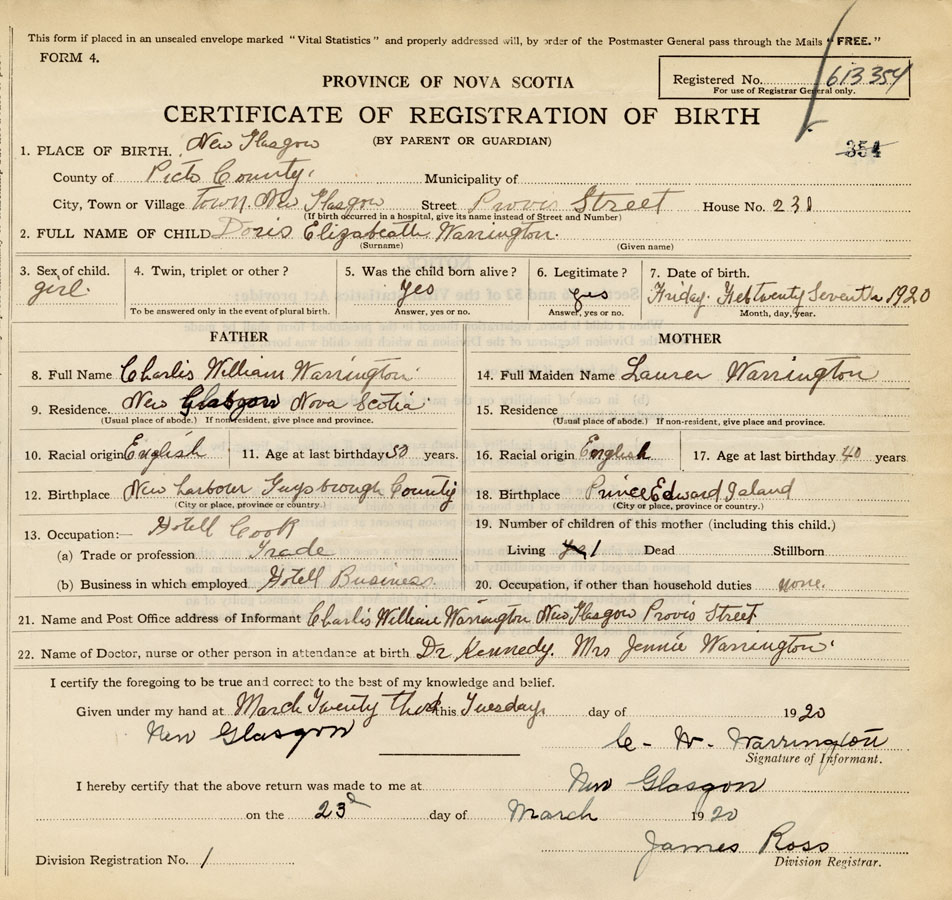 This form if placed in an unsealed envelope marked "Vital Statistics" and properly addressed will, by order of the Postmaster General pass through the Mails "FREE."
FORM 4.
Registered No. 613354
For use of Registrar General only.
PROVINCE OF NOVA SCOTIA
CERTIFICATE OF REGISTRATION OF BIRTH
(BY PARENT OR GUARDIAN)
354
1. PLACE OF BIRTH. New Glasgow
County of Picto County. Municipality of
City, Town or Village Town. New Glasgow Street Provis Street House No. 231
(If birth occurred in a hospital, give its name instead of Street and Number)
2. FULL NAME OF CHILD Doris Elizabeath Warrington.
(Surname) (Given name)
3. Sex of child. 4. Twin, triplet or other? 5. Was the child born alive? 6. Legitimate? 7. Date of birth.
girl. yes yes Friday. Feb twenty Seventh 1920
To be answered only in the event of plural birth. Answer, yes or no. Answer, yes or no. Month, day, year.
FATHER MOTHER
8. Full Name Charlis William Warrington 14. Full Maiden Name Laurer Warrington
9. Residence. New Glasgow Nova Scotia 15. Residence
(Usual place of abode.) If non-resident, give place and province. (Usual place of abode.) If non-resident, give place and province.
10. Racial origin English 11. Age at last birthday 50 years. 16. Racial origin English 17. Age at last birthday 40 years
12. Birthplace New harbour Guysbrough County 18. Birthplace Prince Edward Island
(City or place, province or country.) (City or place, province or country.)
13. Occupation:— Hotell Cook 19. Number of children of this mother (including this child.)
(a) Trade or profession Trade Living 1 Dead Stillborn
(b) Business in which employed Hotell Business. 20. Occupation, if other than household duties none.
21. Name and Post Office address of Informant Charlis William Warrington New Glasgow Provis Street
22. Name of Doctor, nurse or other person in attendance at birth Dr Kennedy. Mrs Jennie Warrington
I certify the foregoing to be true and correct to the best of my knowledge and belief.
Given under my hand at March Twenty this Tuesday, day of 1920
New Glasgow
C- W- Warrington
Signature of Informant.
I hereby certify that the above return was made to me at New Glasgow
on the 23d day of March 1920
James Ross
Division Registration No. 1 Division Registrar.